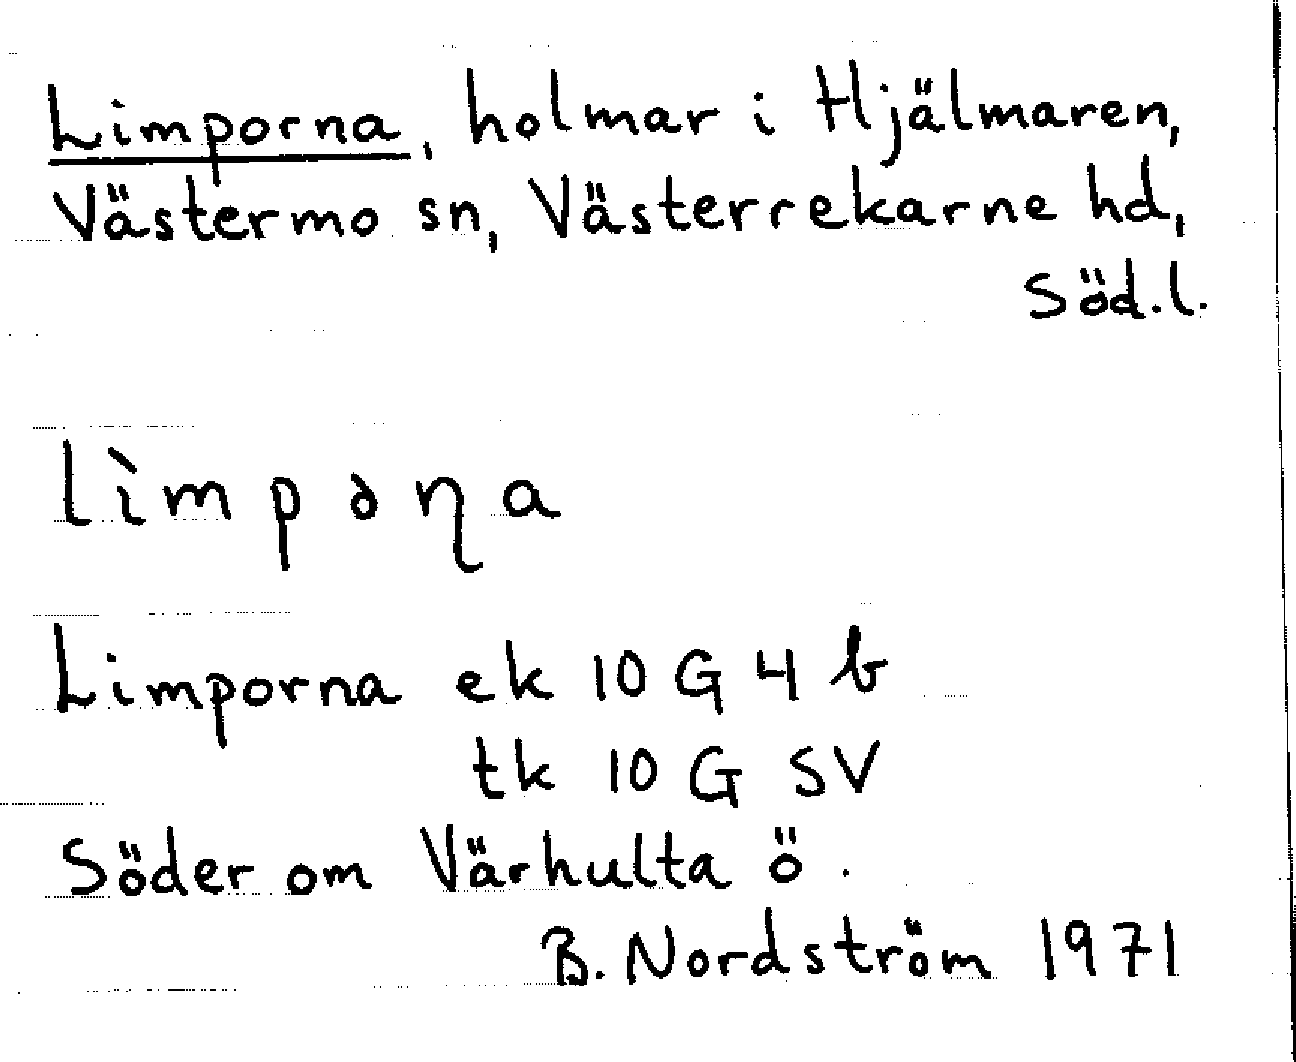 Limporna, holmar i Hjälmaren,
Västermo sn, Västerrekarne hd,
Söd.l.
lìmpoɳa
Limporna ek 10 G 4 b
tk 10 G SV
Söder om Värhulta ö.
B. Nordström 1971